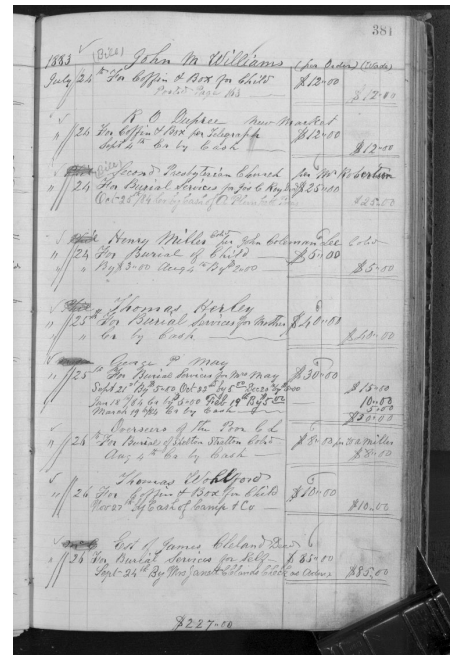 381
1883 (Bill) John M Williams (per Order) (Wade)
July 24th For Coffin & Box for Child $12-00
Posted Page
$12-00
R. O. Dupree New Market
" 26 For Coffin & Box per Telegraph $12-00
Sept 4th Cr by Cash
$12-00
Second Presbyterian Church per Mr Robertson
" 24 For Burial Services for Jos C $25-00
Oct 25 /84 Cr by
$25-00
Henry Miller Cold for John Coleman Lee Cold
" 24 For Burial of Child $5-00
" By $3-00 Aug 4th By $2-00 $5-00
Thomas Horley
" 25th For Burial Services for Mother $40-00
" Cr by Cash
$40-00
George P. May
" 25th For Burial Services for Mrs May $30-00
Sept 21st By $5-00 Oct 23rd by 5.00 Dec 22 By 5.00 $15-00
Jan 18th /84 Cr by 5-00 Feb 19th By $5.00 10-00
March 19th /84 Cr by Cash 5-00
$30-00
Overseers of the Poor C.L.
" 24 For Burial of Stratton Cold $8-00 for W A Miller
Aug 4th Cr by Cash $8-00
Thomas Wohlford
" 26 For Coffin & Box for Child $10-00
Nov 23rd By Cash of Camp & Co $10-00
Est of James Cleland Decd
" 26 For Burial Services for Self $85-00
Sept 24th By Mrs Jane H Cleland Check as Admx $85.00
$227-00